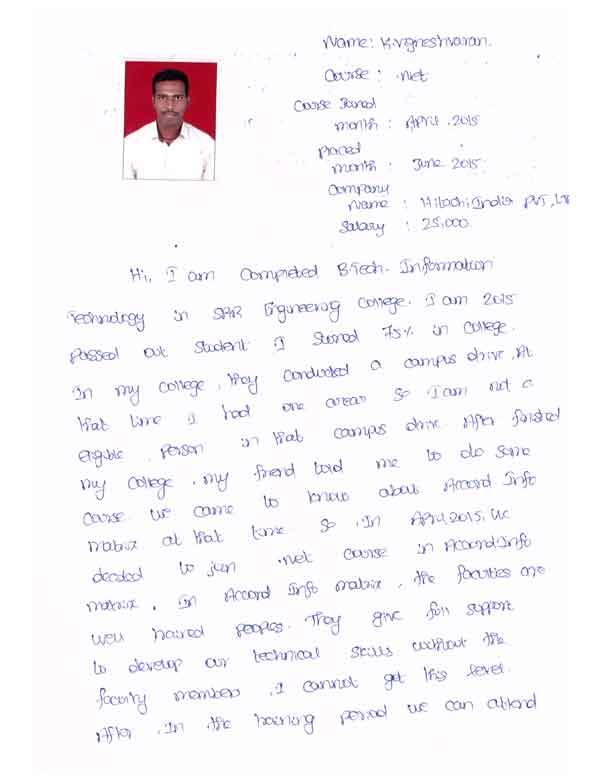 Name: K.Vigneshvaran.
Course : .Net
Course Joined
month : April, 2015
Placed
month : June 2015.
Company
Name : Hitachi India PVT, Ltd
Salary : 25,000.
Hi, I am Completed B.Tech. Information
Technology in SPR Engineering College. I am 2015
passed out student. I Scored 75% in college.
In my college, they conducted a campus drive. At
that time I had one arear so I am not a
eligible person in that campus drive. After finished
my college, my friend told me to do some
Course. We came to know about Accord Info
matrix at that time so, In April 2015, we
decided to join .net course in Accord Info
matrix. In Accord Info matrix, the faculties are
well trained peoples. They give full support
to develop our technical skills without the
faculty members, I cannot get this level.
After, In the training period we can attend